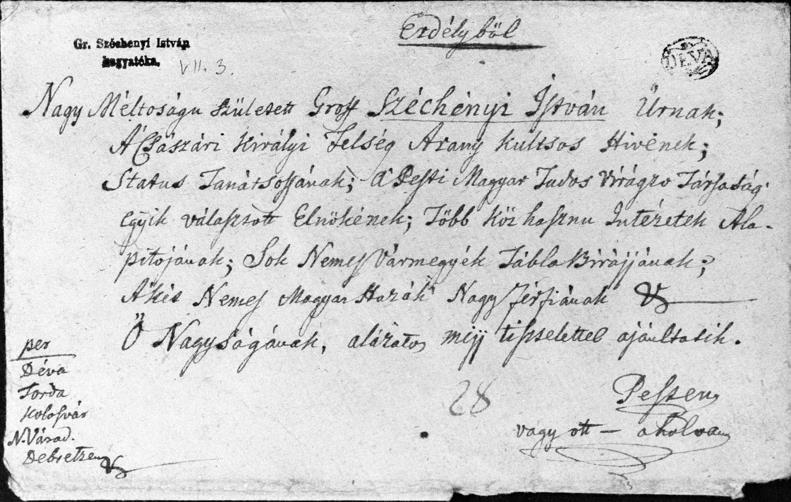 Erdélyből
Gr. Széchenyi István
hagyatéka.
VII. 3.
DÉVA
Nagy Méltóságu Született Groff Széchényi István Úrnak;
A' Császári Királyi Felség Arany Kultsos Hivének;
Status Tanátsossának; a' Pesti Magyar Tudos Társaság
egyik választott Elnökének; Több Köz hasznu Intézetek Ala-
pitojának; Sok Nemes Vármegyék Tábla Birájjának;
A' két Nemes Magyar Hazák Nagy Férfiának
Ő Nagyságának, alázatos mijj tisztelettel ajánltatik.
per
Déva
Torda
Kolosvár
N. Várad.
Debretzen
28
Pesten
vagy ott – ahol van